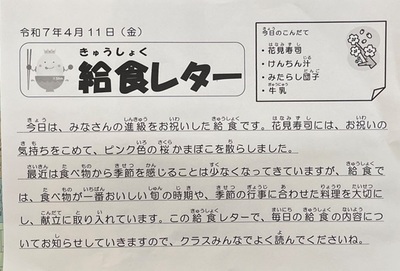 令和７年４月１１日（金）
給食レター
今日のこんだて
・花見寿司
・けんちん汁
・みたらし団子
・牛乳
今日は、みなさんの進級をお祝いした給食です。花見寿司には、お祝いの
気持ちをこめて、ピンク色の桜かまぼこを散らしました。
最近は食べ物から季節を感じることは少なくなってきていますが、給食で
は、食べ物が一番おいしい旬の時期や、季節の行事に合わせた料理を大切に
し、献立に取り入れています。この給食レターで、毎日の給食の内容につ
いてお知らせしていきますので、クラスみんなでよく読んでくださいね。